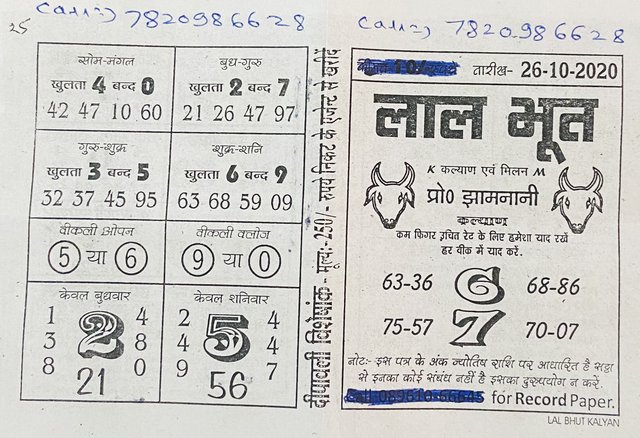 Call=) 7820986628
25
सोम-मंगल
खुलता 4 बन्द 0
42 47 10 60
बुध-गुरु
खुलता 2 बन्द 7
21 26 47 97
गुरु-शुक्र
खुलता 3 बन्द 5
32 37 45 95
शुक्र-शनि
खुलता 6 बन्द 9
63 68 59 09
वीकली ओपन
5 या 6
वीकली क्लोज
9 या 0
केवल बुधवार
1 4
3 2 8
8 0
21
केवल शनिवार
2 4
4 5 4
9 7
56
दीपावली विशेषांक - मूल्य:-250/- रुपये निकट के एजेन्ट से खरीदें
Call=) 7820986628
तारीख- 26-10-2020
लाल भूत
K कल्याण एवं मिलन M
प्रो0 झामनानी
कल्याण
कम फिगर उचित रेट के लिए हमेशा याद रखें
हर वीक में याद करें.
63-36 6 68-86
75-57 7 70-07
नोट:- इस पत्र के अंक ज्योतिष राशि पर आधारित है सट्टा
से इनका कोई संबंध नहीं है इसका दुरुपयोग न करें.
for Record Paper.
LAL BHUT KALYAN